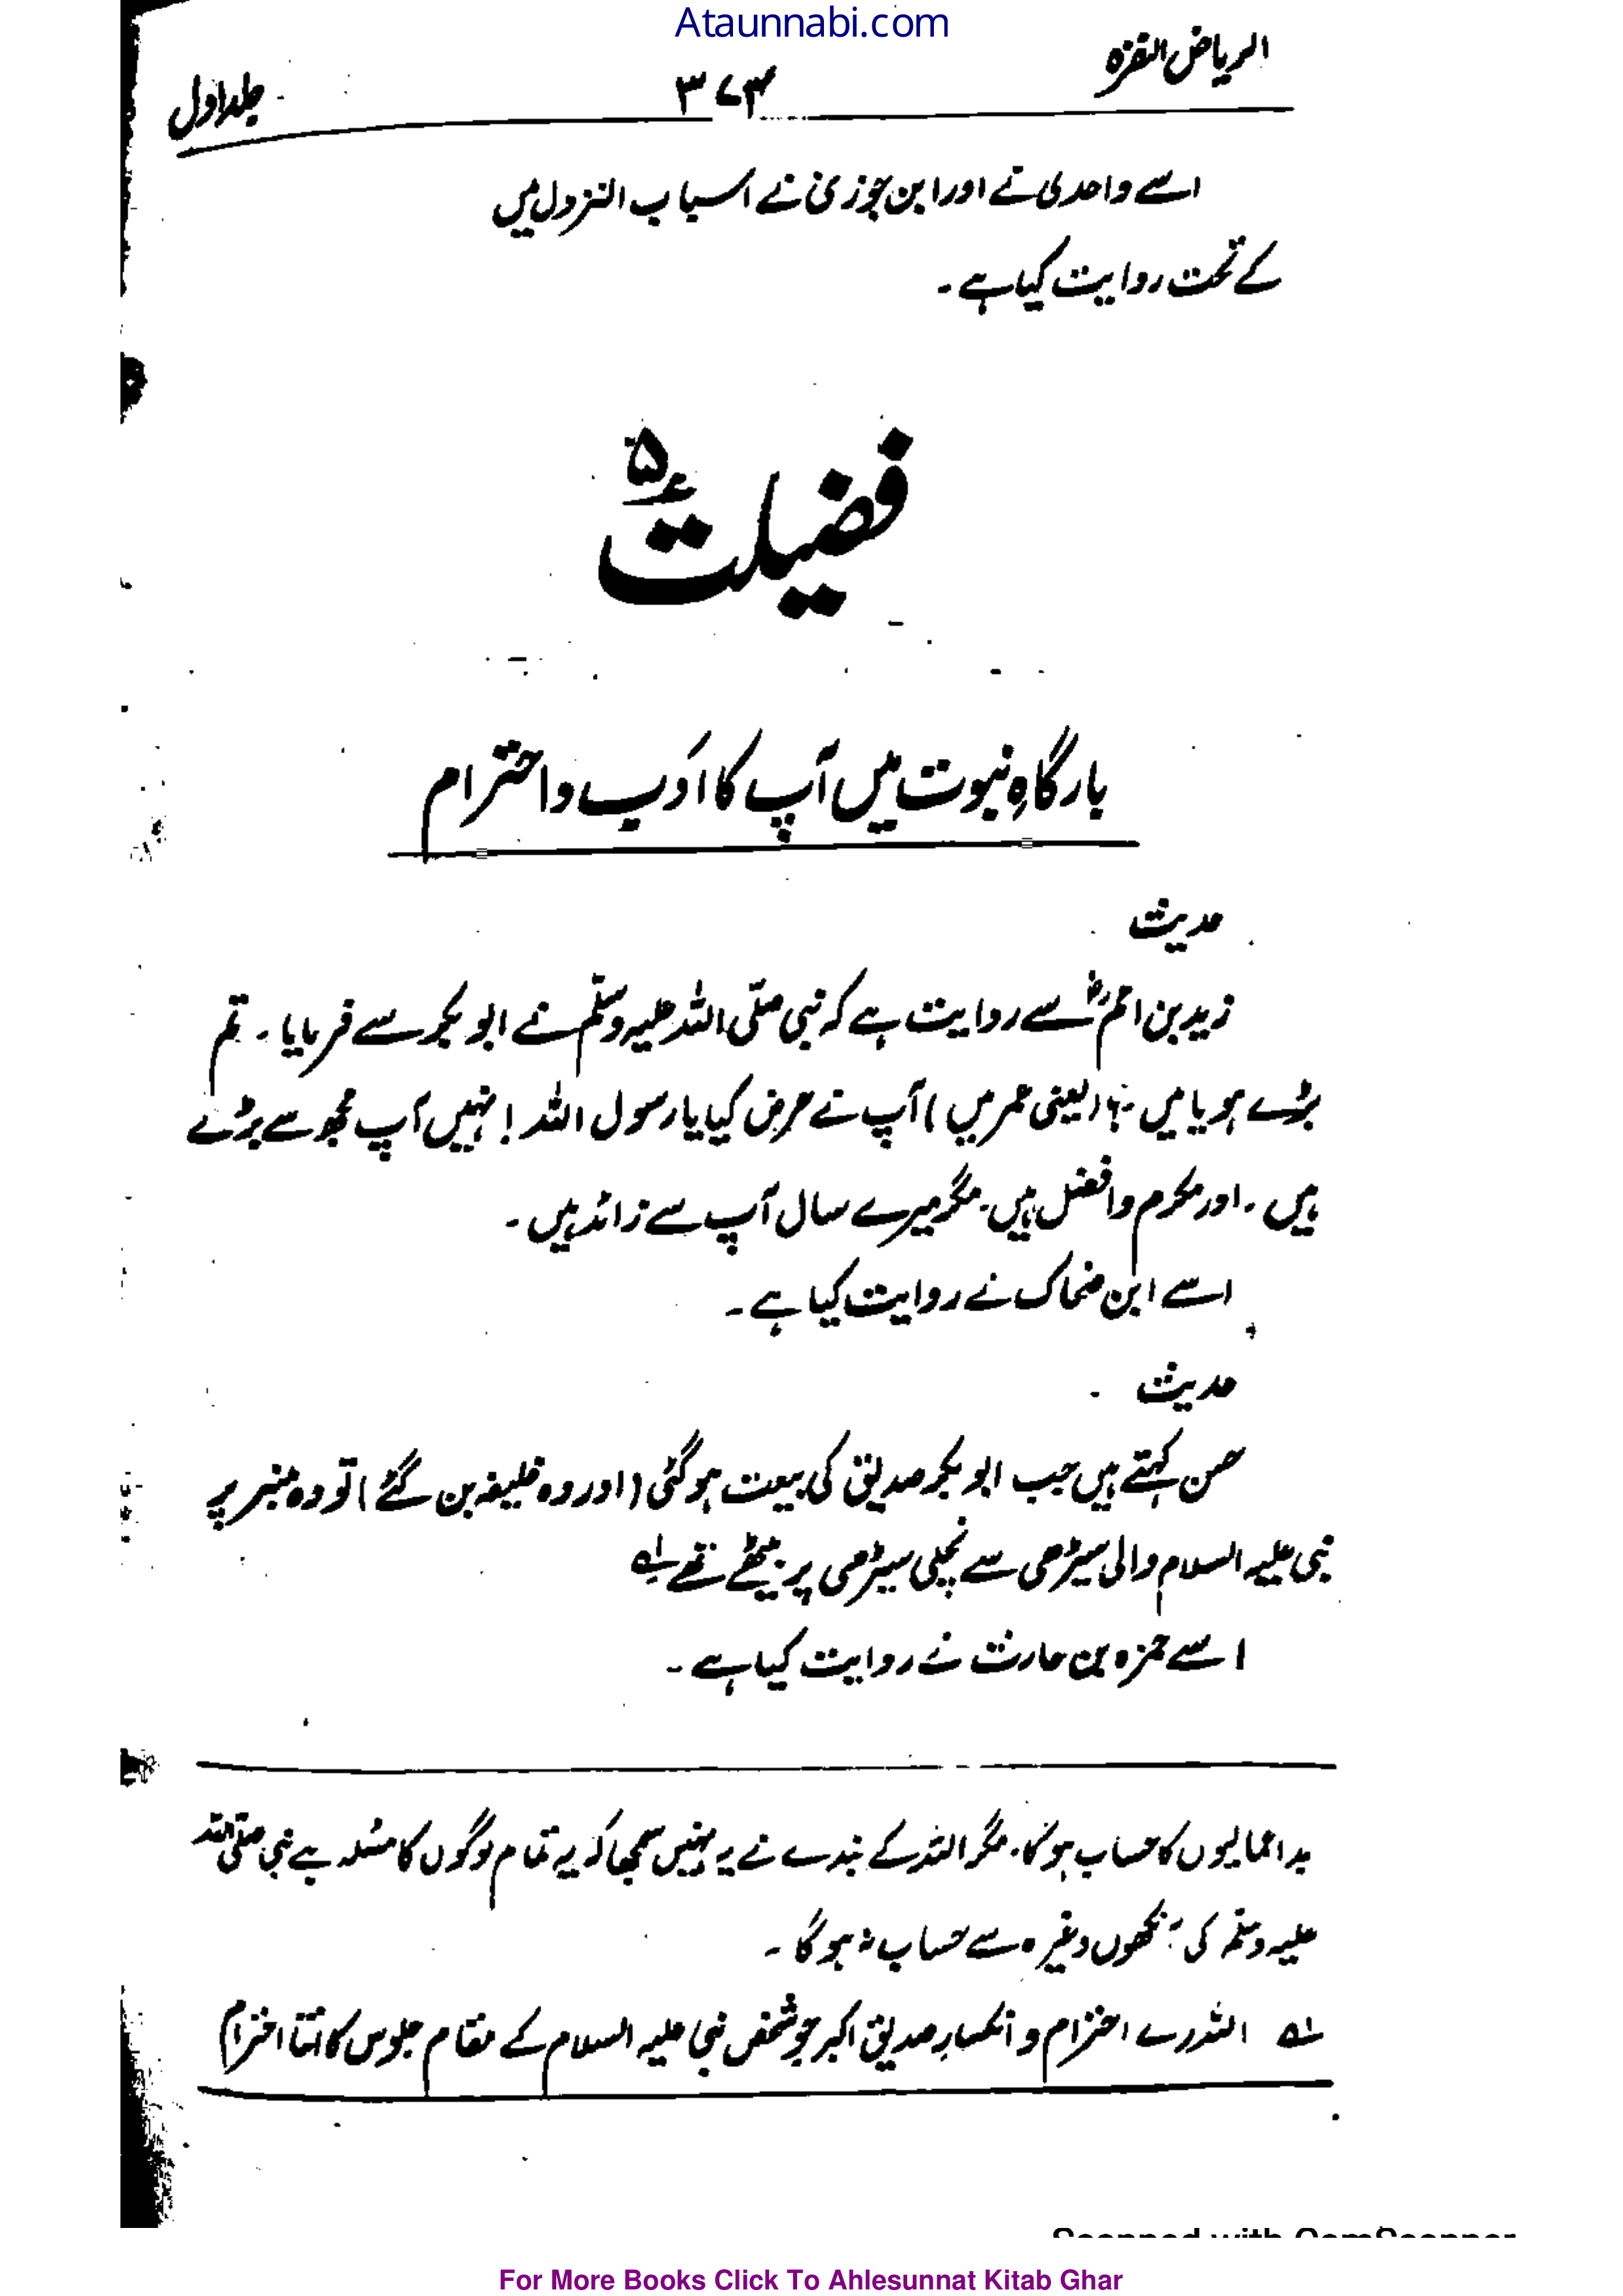 Ataunnabi.com
الریاض النقزہ
۳۷۴
جلد اول
اسے واحدی نے اور ابن جوزی نے اسباب النزول میں
کے تحت روایت کیا ہے ۔
فضیلت ۵
بارگاہِ نبوت میں آپ کا اَدب و احترام
حدیث
زید بن اصم رضؓ سے روایت ہے کہ نبی صلّی اللہ علیہ وسلّم نے ابوبکر سے فرمایا ۔ تم
بڑے ہو یا میں ۔؟ (یعنی عمر میں) آپ نے عرض کیا یا رسول اللہ ! نہیں آپ مجھ سے بڑے
ہیں ۔ اور مکرم و افضل ہیں ۔ مگر میرے سال آپ سے زائد ہیں ۔
اسے ابن ضحاک نے روایت کیا ہے ۔
حدیث
حسن کہتے ہیں جب ابوبکر صدیق کی بیعت ہو گئی (اور وہ خلیفہ بن گئے) تو وہ منبر پر
نبی علیہ السلام والی سیڑھی سے نچلی سیڑھی پر بیٹھے تھے لہ
اسے حمزہ بن حارث نے روایت کیا ہے ۔
بد اعمالیوں کا حساب ہو گا ۔ مگر اللہ کے بندے نے یہ نہیں سمجھا کہ یہ تمام لوگوں کا مسئلہ ہے نبی صلی اللہ
علیہ وسلّم کی نکھوں وغیرہ سے حساب نہ ہو گا ۔
لہ اللہ رے احترام و انکسارِ صدیق اکبر جو شخص نبی علیہ السلام کے مقام جلوس کا اتنا احترام
Scanned with CamScanner
For More Books Click To Ahlesunnat Kitab Ghar